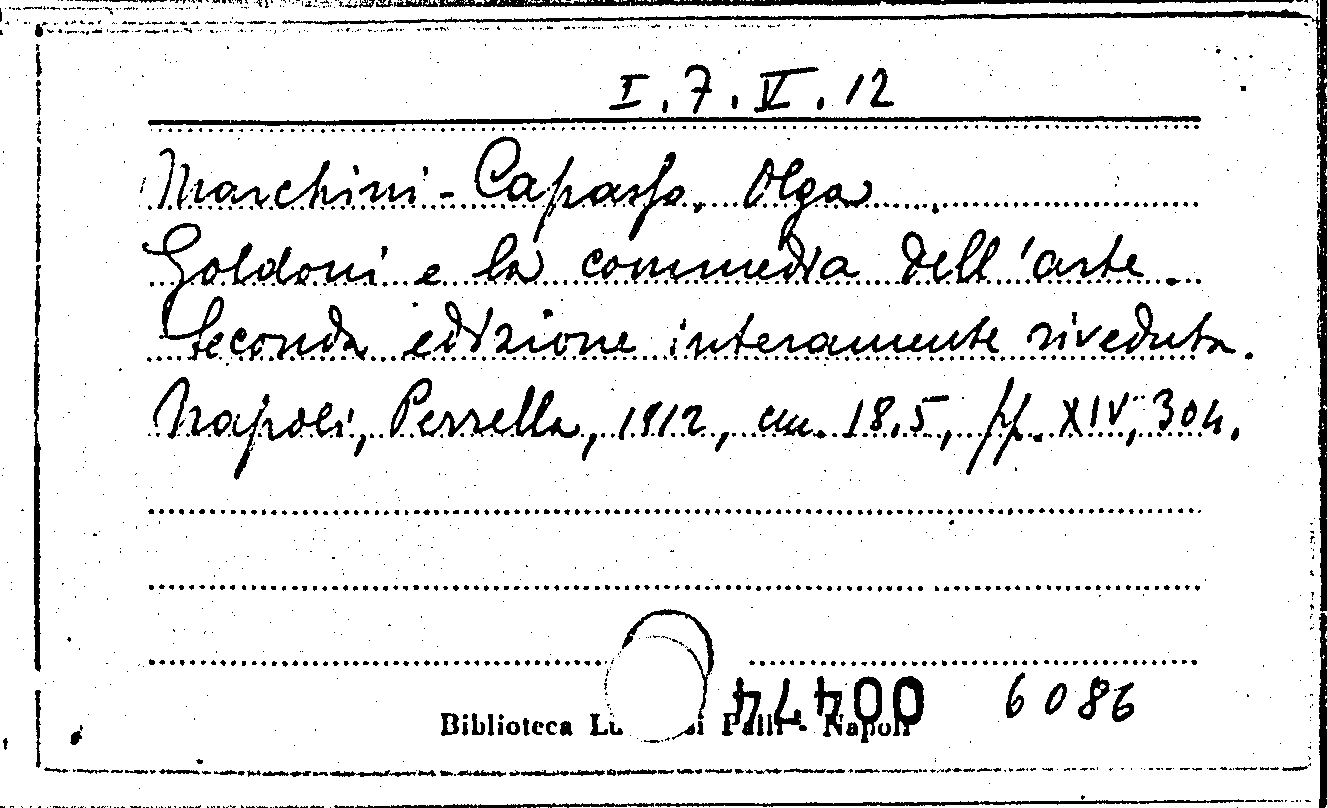 I.7.IV.12
Marchini-Capasso, Olga
Goldoni e la commedia dell'arte.
Seconda edizione interamente riveduta.
Napoli, Perrella, 1912, cm. 18.5, pp. XIV, 304.
6086
Biblioteca Palli - Napoli